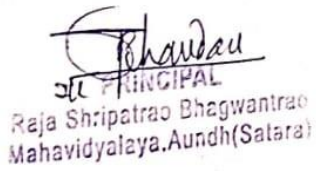 PRINCIPAL
Raja Shripatrao Bhagwantrao
Mahavidyalaya,Aundh(Satara)